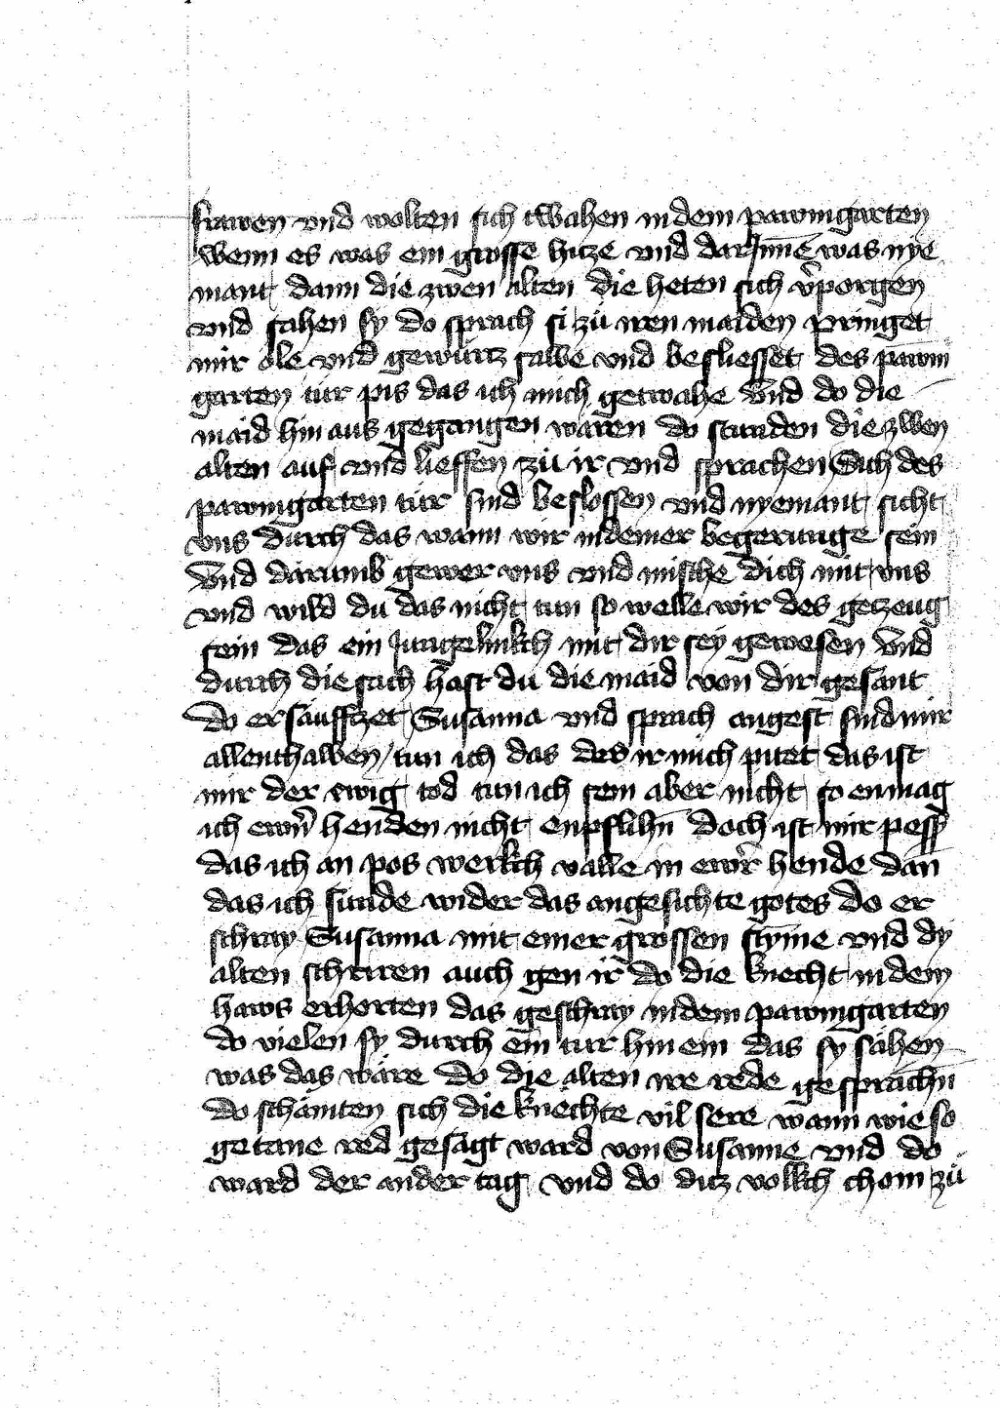 frawen vnd wolten sich twahen in dem pawmgarten
wenn es was ein grosse hitze vnd dar Inne was nye
mant dann die zwen alten die heten sich v̉porgen
vnd sahen sy do sprach si zů iren maiden pringet
mir öle vnd gewurtz salbe vnd besliesset des pawm
garten tür pis das ich mich getwahe Vnd do die
maid hin aus gegangen waren do stunden die zwen
alten auf vnd lieffen zů ir vnd sprachen Sich des
pawmgarten tür sind beslossen vnd nyemant sicht
vns durch das wann wir in deiner begerunge sein
Vnd darumb gewer vns vnd mische dich mit vns
vnd wild du das nicht tun so welle wir des getzeug
sein das ein Jungelinkch mit dir sey gewesen Vnd
durch die sach hast du die maid von dir gesant
do ersäufftzet Susanna vnd sprach angest sind mir
allenthalben tun ich das des ir mich pitet das ist
mir der ewig tod tun ich sein aber nicht so enmag
ich ewr̄n henden nicht enpflihn̄ doch ist mir pess̉
das ich an pos werkch valle in ewr̉ hende dan̄
das ich sunde wider das angesichte gotes do er
schray Susanna mit einer grossen stym̄e vnd dy
alten schriren auch gen ir do die knecht in dem
haws erhorten das geschray in dem pawmgarten
do vielen sy durch ein tür hin ein das sy sähen
was das wäre do die alten ire rede gesprachn̄
do schämten sich die knechte vil sere wann wie so
getane red gesagt ward von Susanne vnd do
ward der ander tag vnd do ditz volkch chom zů